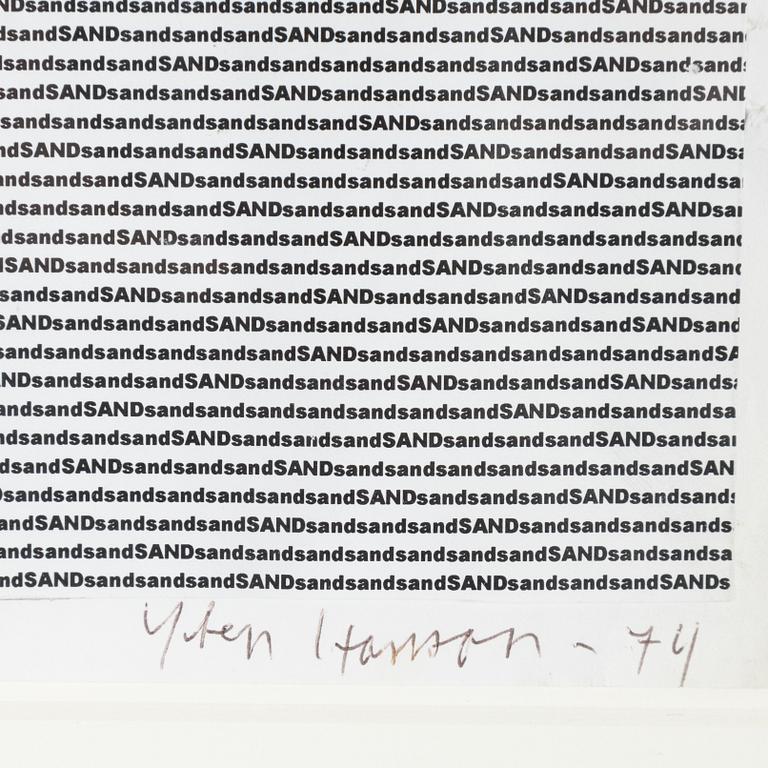 NDsandsandsandsandsandsandsandSANDsandsandsandSANDsandsa
dsandSANDsandsandsandSANDsandsandsandSANDsandsandsandsan
dsandsandsandSANDsandsandsandsandsandsandsandSANDsandsands
sandSANDsandsandsandSANDsandsandsandSANDsandsandsandSAND
sandsandsandsandsandsandsandSANDsandsandsandsandsandsandsa
ndSANDsandsandsandSANDsandsandsandSANDsandsandsandSANDsa
ndsandsandSANDsandsandsandsandsandsandsandSANDsandsandsa
dsandsandsandsandSANDsandsandsandSANDsandsandsandSANDsan
dsandsandSANDsandsandsandSANDsandsandsandsandsandsandsand
SANDsandsandsandsandsandsandsandSANDsandsandsandSANDsand
sandsandSANDsandsandsandSANDsandsandsandSANDsandsandsand
SANDsandsandsandSANDsandsandsandSANDsandsandsandSANDsand
sandsandsandsandsandsandSANDsandsandsandsandsandsandsandSA
NDsandsandsandSANDsandsandsandSANDsandsandsandSANDsandsa
andsandSANDsandsandsandsandsandsandsandSANDsandsandsandsa
ndsandsandsandSANDsandsandsandSANDsandsandsandSANDsandsan
dsandSANDsandsandsandSANDsandsandsandsandsandsandsandSAN
DsandsandsandsandsandsandsandSANDsandsandsandSANDsandsands
andSANDsandsandsandSANDsandsandsandSANDsandsandsandsands
andsandsandSANDsandsandsandsandsandsandsandSANDsandsandsa
ndSANDsandsandsandSANDsandsandsandSANDsandsandsandSANDs
Sten Hanson - 74